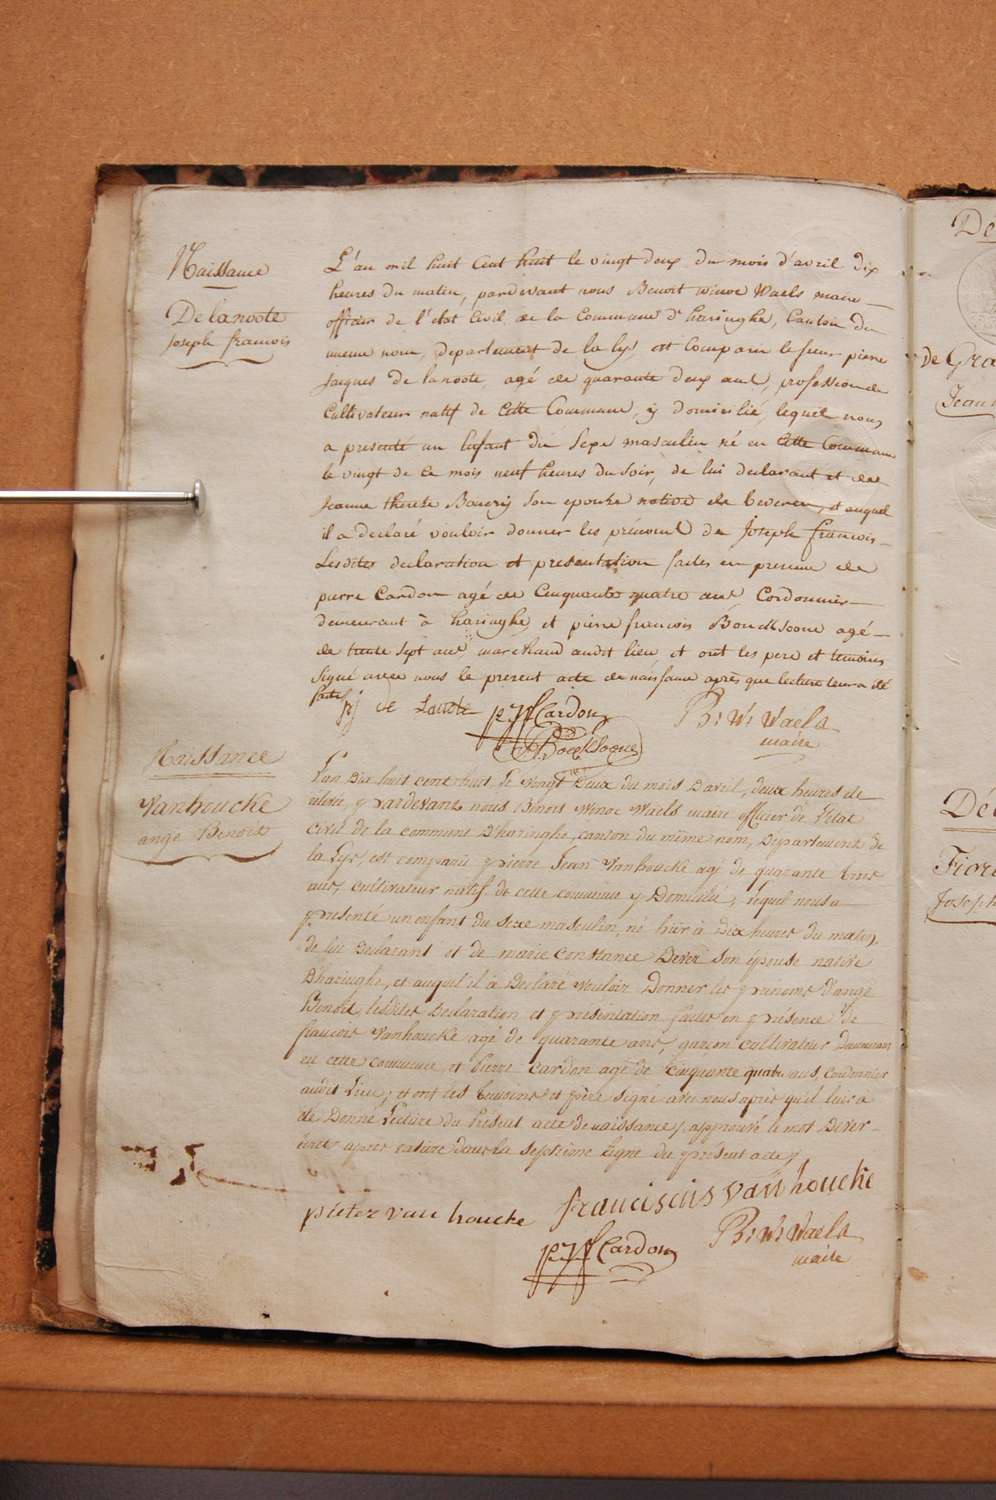 Naissance
De lanoote
Joseph francois
L'an mil huit cent huit le vingt deux du mois d'avril dix
heures du matin, pardevant nous Benoit winoc Waels maire
officier de l'etat Civil de la Commune d'haringhe, Canton du
meme nom, departement de la lys est Comparu le sieur pierre
Jacques de lanoote, agé de quarante deux ans, profession de
Cultivateur natif de Cette Commune, y domicilié, lequel nous
a presenté un Enfant du Sexe masculin né en Cette Commune
le vingt de ce mois neuf heures du soir, de lui declarant et de
Jeanne therese Son epouse native de beveren, et auquel
il a declaré vouloir donner les prénoms de Joseph francois
Lesdites declaration et presentation faites en presence de
pierre Cardon agé de Cinquante quatre ans Cordonnier
demeurant à haringhe et pierre francois Boucksoone agé
de trente Sept ans marchand audit lieu et ont les pere et temoins
Signé avec nous le present acte de naissance après que lecture leur a été
faite
pj de Lanote
pjf Cardon
B: W: Waels
maire
Boecksoone
Naissance
Vanhoucke
ange Benoit
L'an Dix huit cent huit, le vingt Deux du mois D'avril, deux heures de
relevée, pardevant nous Benoit Winoc Waels maire officier de l'état
civil de la commune D'haringhe, canton du même nom, Département de
la Lys, est comparu pierre Jean Vanhoucke agé de quarante trois
ans, cultivateur natif de cette commune y Domicilié, lequel nous a
présenté un enfant du sexe masculin, né hier à Dix heures du matin,
de lui Declarant et de marie constance Dever son épouse native
D'haringhe, et auquel il a Declaré vouloir Donner les prenoms D'ange
Benoit, lesdites Declaration et présentation faites en présence de
francois Vanhoucke agé de quarante ans, garçon cultivateur Demeurant
en cette commune, et Pierre Cardon agé de cinquante quatre ans, cordonnier
audit Lieu; et ont les temoins et père signé avec nous après qu'il leur a
été Donné Lecture du Présent acte de naissance, approuvé le mot Dever
après rature dans la septieme ligne du présent acte
pieter van houcke
franciscus vanhoucke
B: W: Waels
maire
pjf Cardon
De
de Gra
Jean
Dé
Fior
Joseph